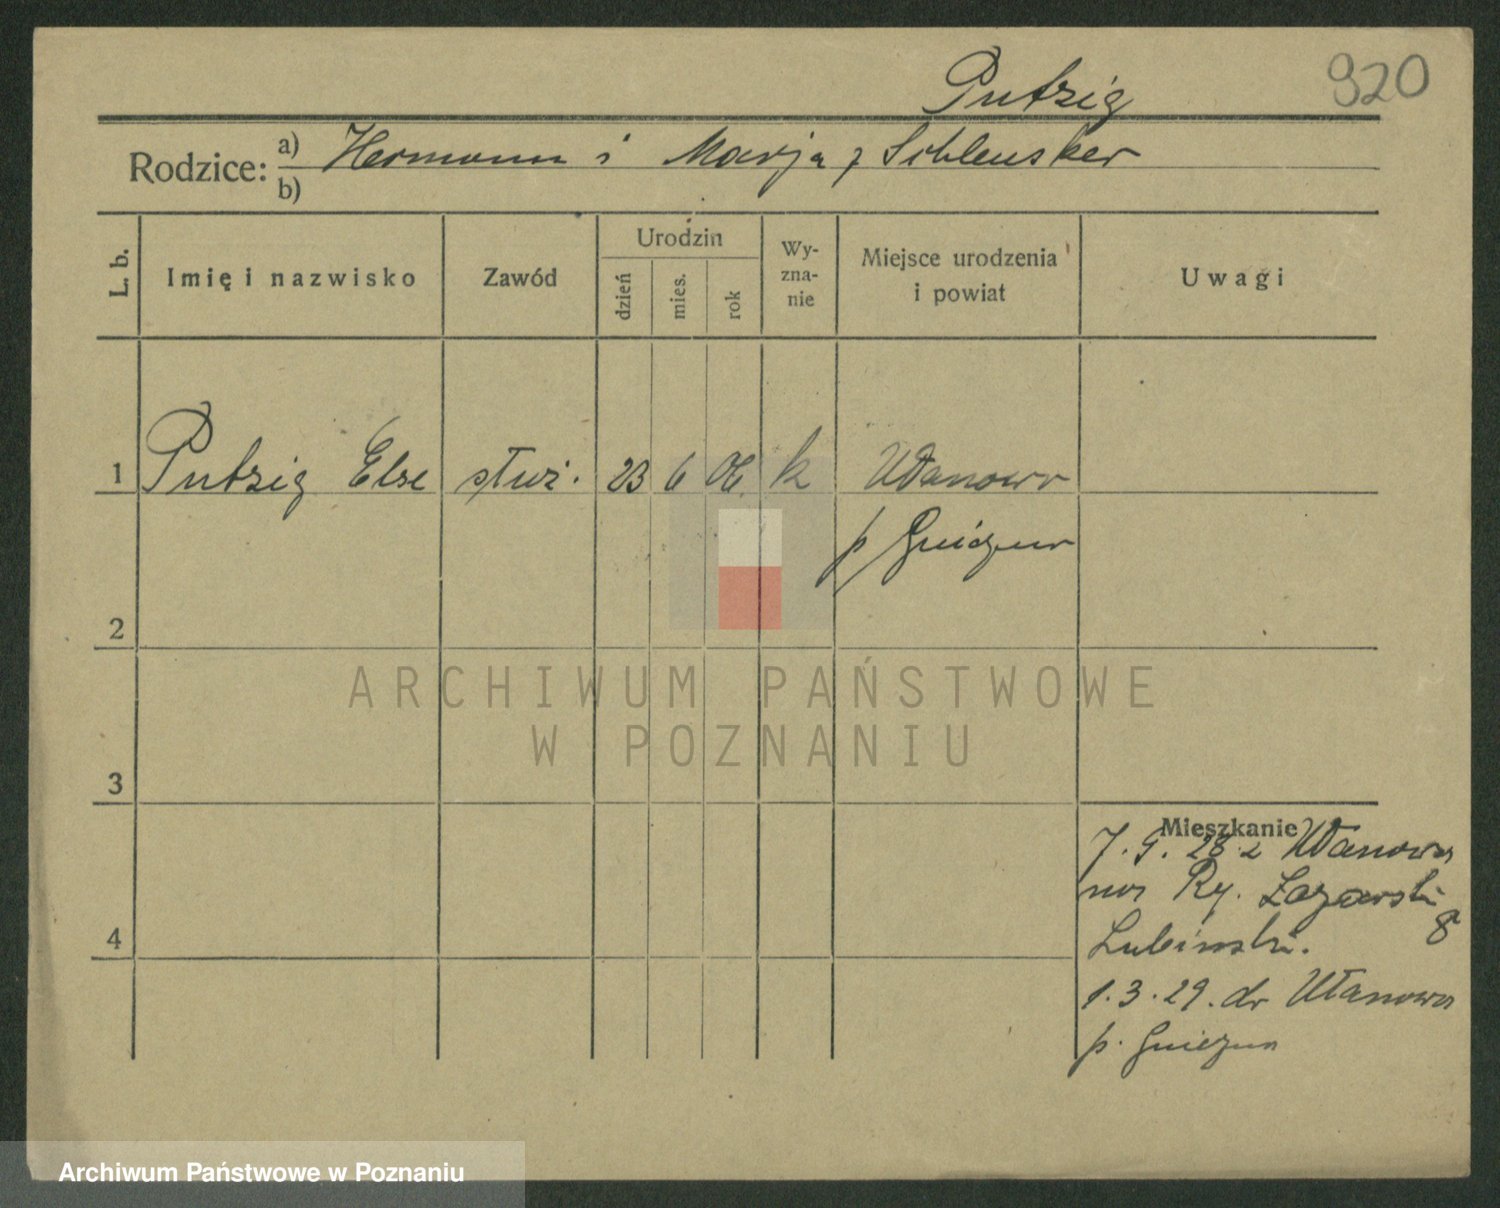 Putzig 920
Rodzice: a) Hermann i Marja z Schleusker
b)
L. b. Imię i nazwisko Zawód Urodzin dzień mies. rok Wy-zna-nie Miejsce urodzenia i powiat Uwagi
1 Putzig Else służ. 23 6 06 k Ułanowo
p Gniezno
2
ARCHIWUM PAŃSTWOWE
W POZNANIU
3
Mieszkanie
7. 9. 28 z Ułanowa
na Ry. Łazarski 8
Lubiński.
4
1. 3. 29. do Ułanowa
p. Gniezno
Archiwum Państwowe w Poznaniu